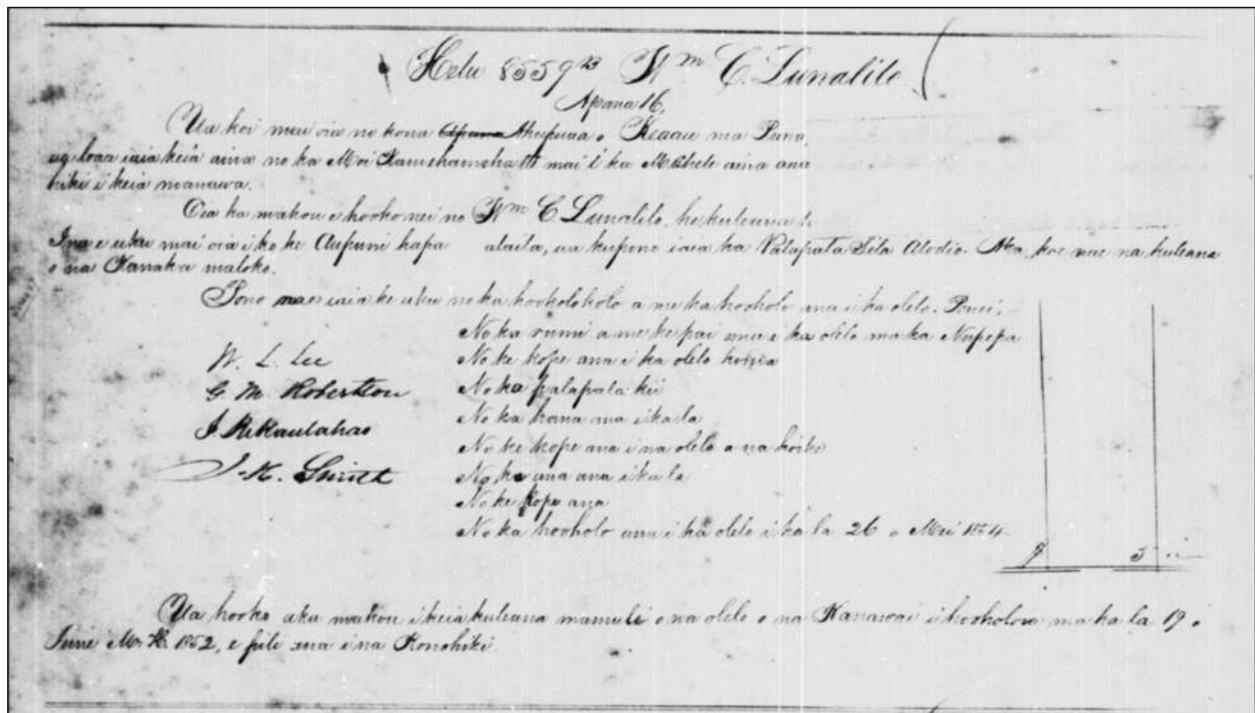 Helu 8559 B Wm C. Lunalilo
Apana 16.
Ua koi mai oia no kona Apana Ahupuaa o Keaau ma Puna,
ua loaa iaia keia aina no ka Moi Kamehameha III mai i ka Mahele aina ana
hiki i keia manawa.
Oia ka makou e hooko nei no Wm C Lunalilo, he kuleana
Ina e uku mai oia i ko ke Aupuni hapa alaila, ua kupono iaia ka Palapala Sila Alodio. Aka, koe nae na kuleana
o na Kanaka maloko.
Pono nae iaia ke uku no ka hookolokolo a me ka hooholo ana i ka olelo. Penei;
No ka rumi a me ke pai ana i ka olelo ma ka Nupepa
W. L. Lee No ke kope ana i ka olelo koiia
G. M. Robertson No ka palapala kii
J. Kekaulahao No ka hana ana i ka la
No ke kope ana i na olelo a na hoike
J. H. Smith No ke ana ana i ka la
No ke kope ana
No ka hooholo ana i ka olelo i ka la 26 o Mei 1854.
$ 5
Ua hooko aku makou i keia kuleana mamuli o na olelo o na Kanawai i hooholoia ma ka la 19 o
June M.H. 1852, e pili ana i na Konohiki.